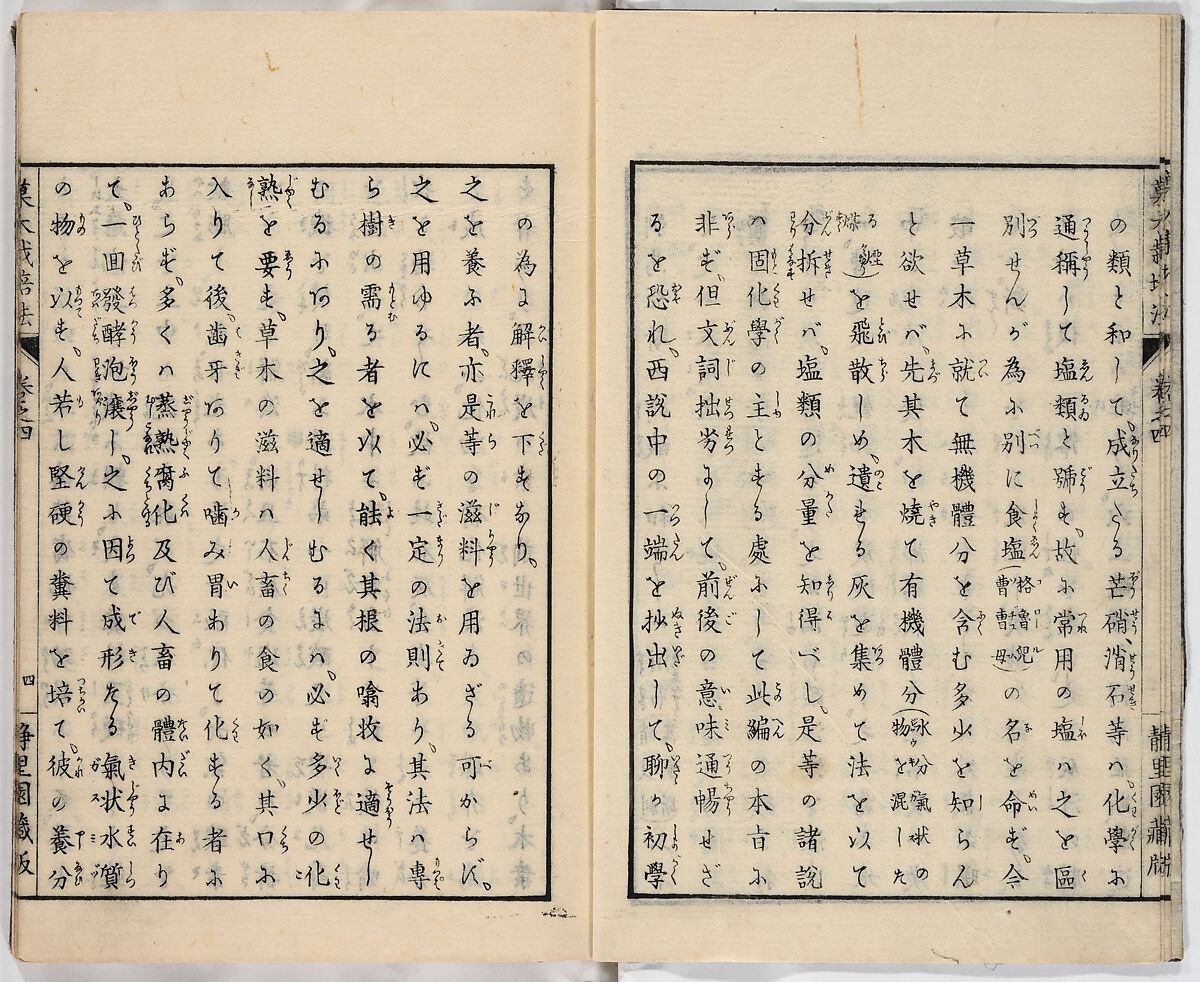 菓木栽培法 卷之四 静里園蔵版
の類と和して、成立たる芒硝、消石等ハ、化學に
通稱して塩類と號す、故に常用の塩ハ之を區
別せんが為に別に食塩(格魯児曹曹母)の名を命ず、今
一草木に就て無機體分を含む多少を知らん
と欲せバ、先其木を燒て有機體分(水分氣状の物を混した
る煙なり)を飛散しめ、遺れる灰を集めて法を以て
分拆せバ、塩類の分量を知得べし、是等の諸説
ハ固化學の主とする處にして此編の本旨に
非ず、但文詞拙劣にして、前後の意味通暢せざ
るを恐れ、西説中の一端を抄出して、聊か初學
の為に解釋を下すなり、
之を養ふ者、亦是等の滋料を用ゐざる可からず、
之を用ゆるにハ、必ず一定の法則あり、其法ハ專
ら樹の需る者を以て、能く其根の噏收に適せし
むるにあり、之を適せしむるにハ、必も多少の化
熟を要す、草木の滋料ハ人畜の食の如く、其口に
入りて後、歯牙ありて噛み胃ありて化する者に
あらず、多くハ蒸熟腐化及び人畜の體内に在り
て、一回發酵泡釀し、之に因て成形たる氣状水質
の物を以す、人若し堅硬の糞料を培て、彼の養分
菓木栽培法 卷之四 四 静里園蔵版